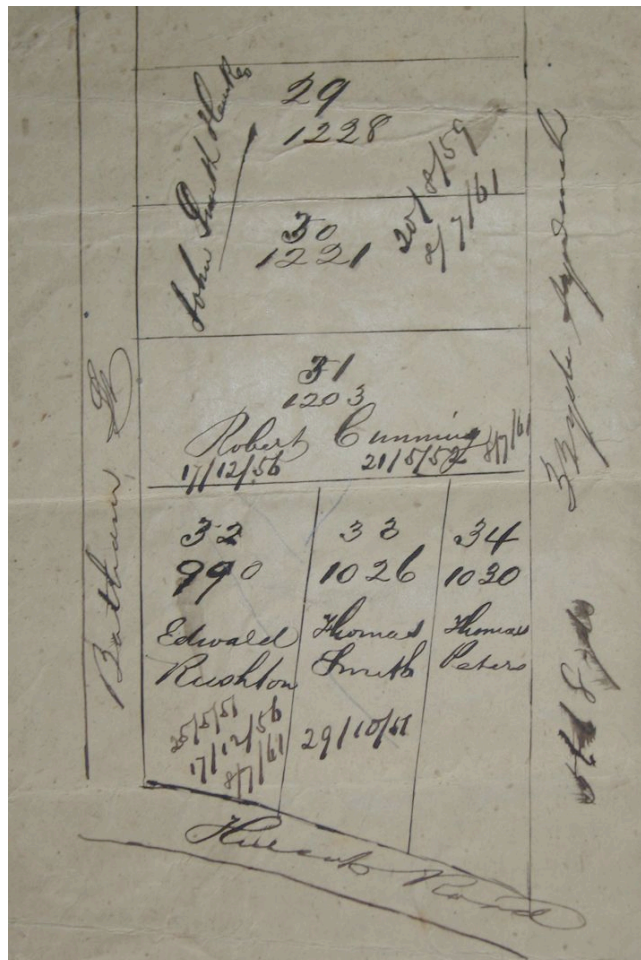 John Smith Hawkes
29
1228
30
1221
20/8/59
8/7/61
31
1203
Robert Cumming
17/12/56
21/5/52
8/7/61
32
990
Edward
Rushton
17/12/56
8/7/61
33
1026
Thomas
Smith
29/10/51
34
1030
Thomas
Peters
St
Road